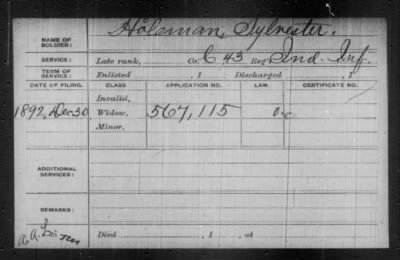 NAME OF SOLDIER: Holsman, Sylvester.
SERVICE: Late rank, Co. C 43 Reg Ind. Inf.
TERM OF SERVICE: Enlisted , 1 Discharged , 1
DATE OF FILING. CLASS APPLICATION NO. LAW. CERTIFICATE NO.
Invalid,
1892, Dec 30 Widow, 567,115
Minor,
ADDITIONAL SERVICES:
REMARKS:
Died , 1 , at